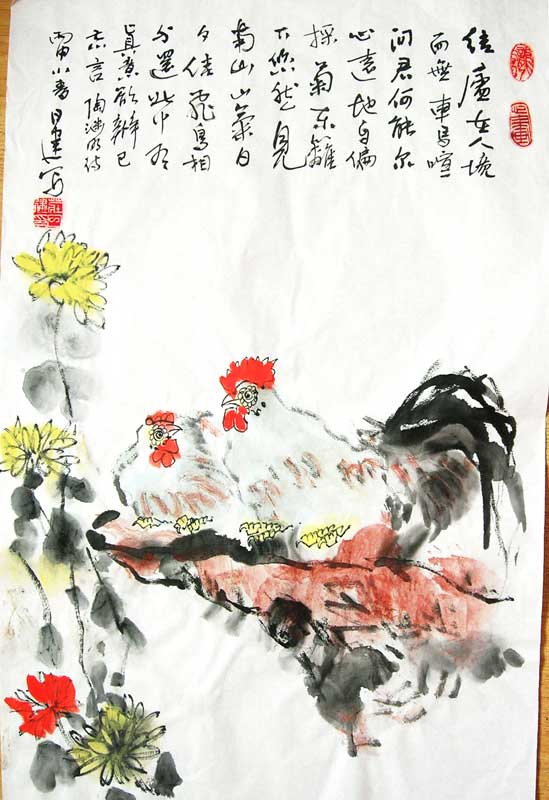 结廬在人境
而無車馬喧
问君何能尔
心遠地自偏
採菊东籬
下悠然見
南山山氣日
夕佳飛鳥相
与還此中有
真意欲辨已
忘言 陶渊明诗
小春 写